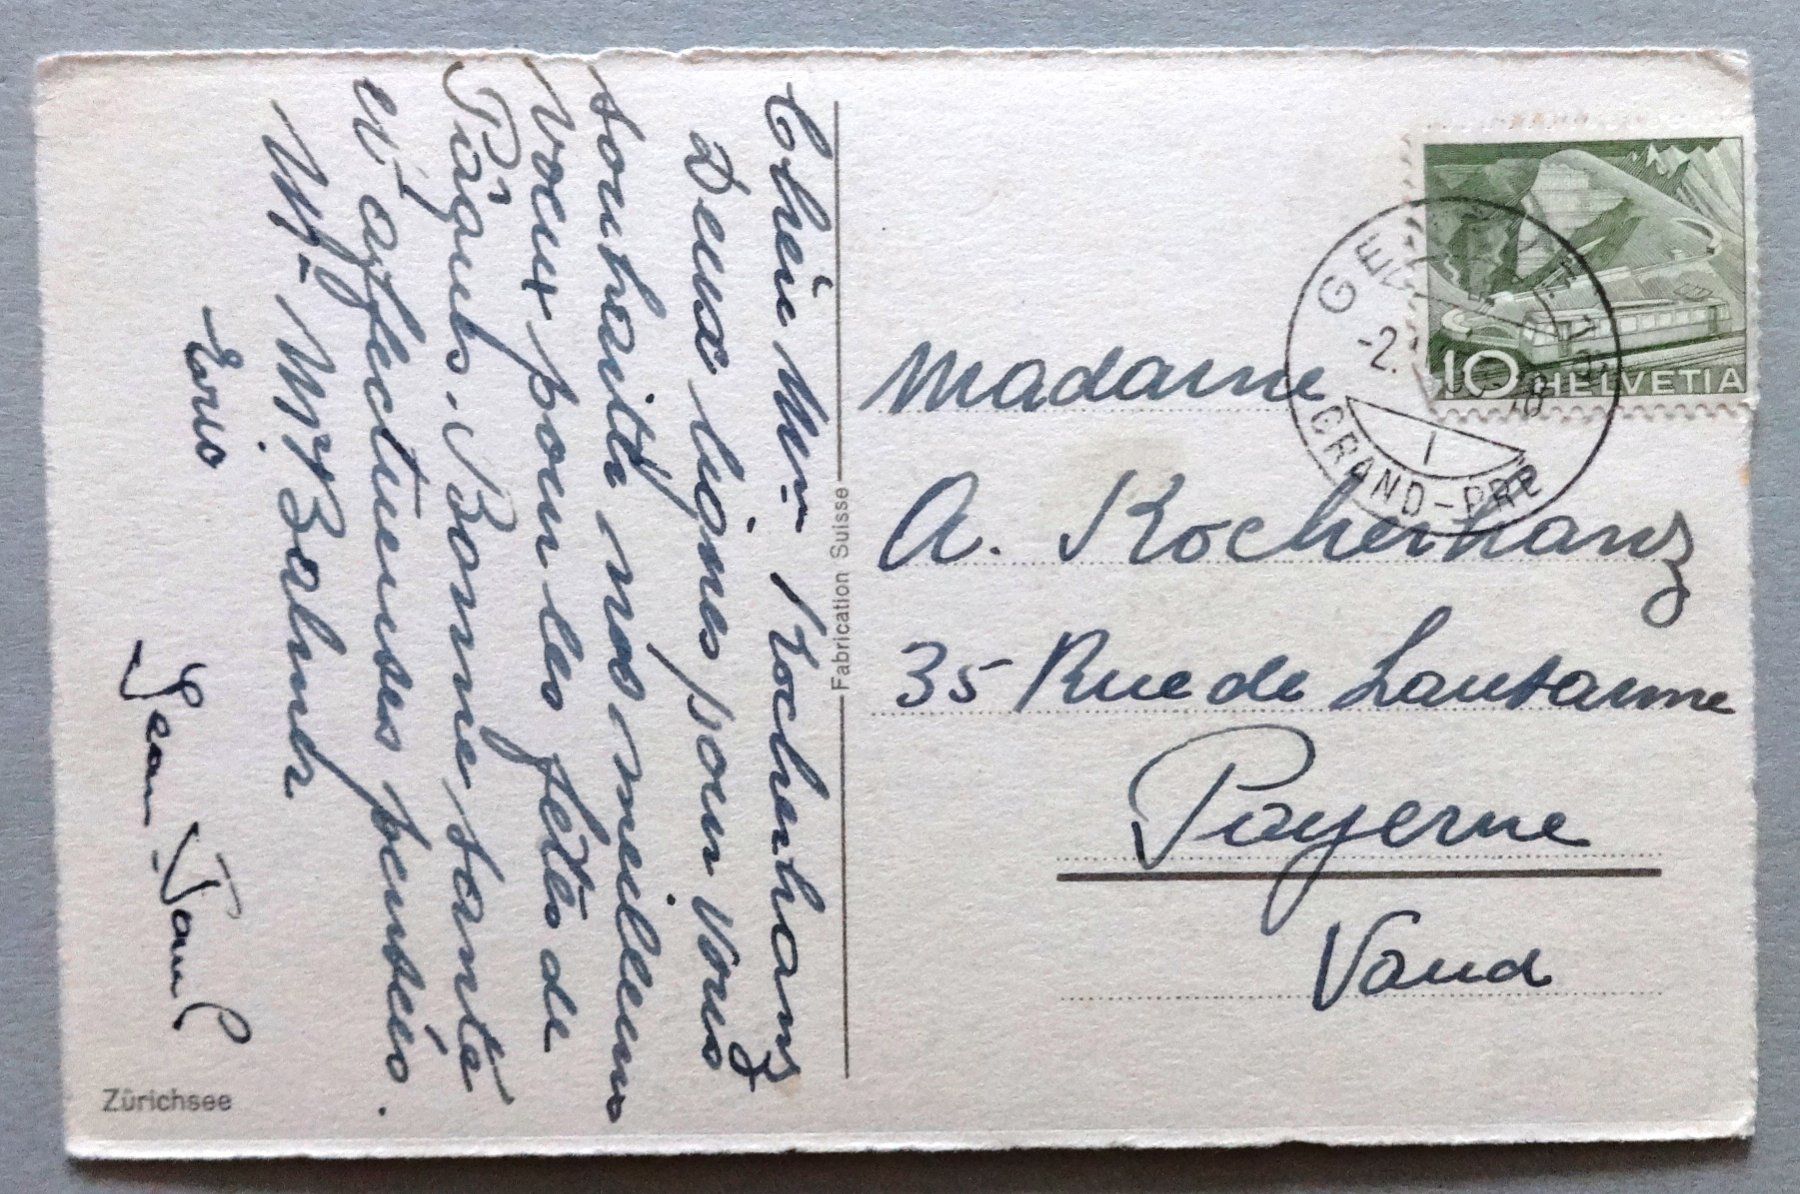 Chère Mme Kocherhans
Deux lignes pour vous
souhaiter nos meilleurs
vœux pour les fêtes de
Pâques. Bonne santé
et affectueuses pensées.
Mr Mme
Eric
Jean-Paul
Zürichsee
Fabrication Suisse
GENÈVE
-2.
1
GRAND-PRÉ
10 HELVETIA
Madame
A. Kocherhans
35 Rue de Lausanne
Payerne
Vaud